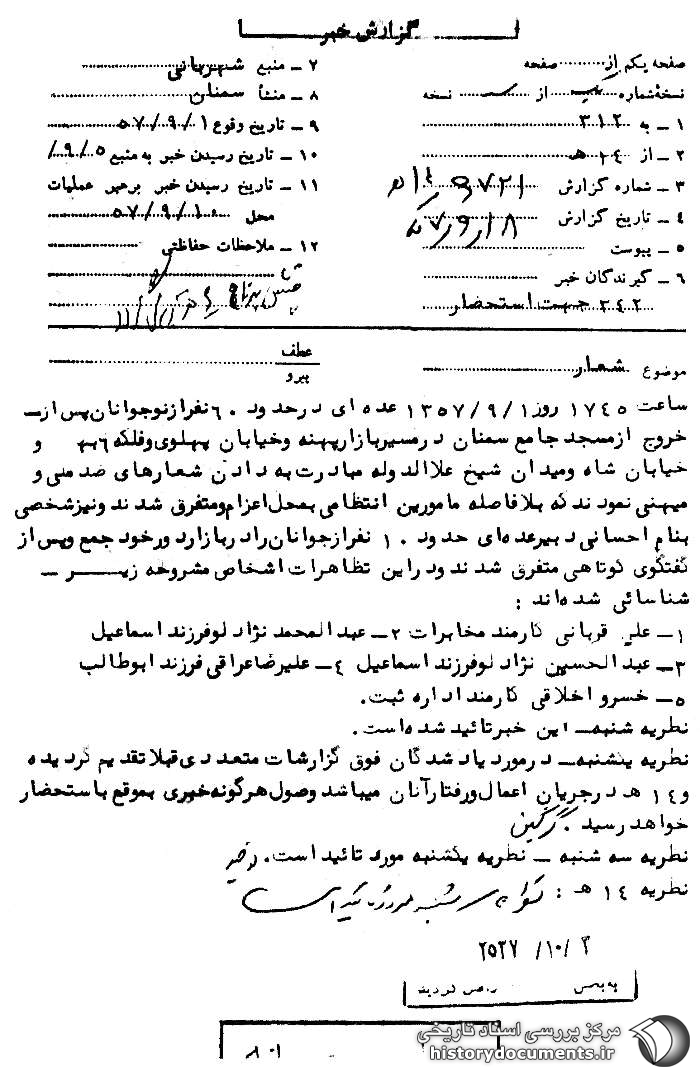 گزارش خبر
صفحه یکم از صفحه
نسخه شماره یک از نسخه
۱ـ به ۳۱۲
۲ـ از ۱٤ هـ
۳ـ شماره گزارش
٤ـ تاریخ گزارش
۵ـ پیوست
۶ـ گیرندگان خبر
۳٤۲ جهت استحضار
۷ـ منبع شهربانی
۸ـ منشأ سمنان
۹ـ تاریخ وقوع ۵۷/۹/۱
۱۰ـ تاریخ رسیدن خبر به منبع ۹/۵/
۱۱ـ تاریخ رسیدن خبر برهبر عملیات
محل ۵۷/۹/۱۰
۱۲ـ ملاحظات حفاظتی
موضوع شعار
عطف
پیرو
ساعت ۱۷٤۵ روز ۱۳۵۷/۹/۱ عده ای درحدود ۶۰ نفرازنوجوانان پس از ـ
خروج ازمسجد جامع سمنان درمسیربازارپهنه وخیابان پهلوی وفلکه ۶بهمن و
خیابان شاه ومیدان شیخ علاالدوله مبادرت به دادن شعارهای ضد ملی و
میهنی نمودند که بلافاصله مامورین انتظامی بمحل اعزام ومتفرق شدند ونیزشخصی
بنام احسانی دبیرعده ای حدود ۱۰ نفرازجوانان رادربازاردورخود جمع وپس از
گفتگوی کوتاهی متفرق شدند ودراین تظاهرات اشخاص مشروحه زیر ـ
شناسائی شده اند :
۱ـ علی قربانی کارمند مخابرات ۲ـ عبدالمحمد نژاد لوفرزند اسماعیل
۳ـ عبدالحسین نژاد لوفرزند اسماعیل ٤ـ علیرضاعراقی فرزند ابوطالب
۵ـ خسرو اخلاقی کارمند اداره ثبت.
نظریه شنبه ـ این خبرتائید شده است.
نظریه یکشنبه ـ درمورد یاد شدگان فوق گزارشات متعددی قبلا تقدیم گردیده
و۱٤ هـ درجریان اعمال ورفتارآنان میباشد وصول هرگونه خبری بموقع باستحضار
خواهد رسید.
نظریه سه شنبه ـ نظریه یکشنبه مورد تائید است.
نظریه ۱٤ هـ :
۲۵۳۷/۱۰/
مرکز بررسی اسناد تاریخی
historydocuments.ir